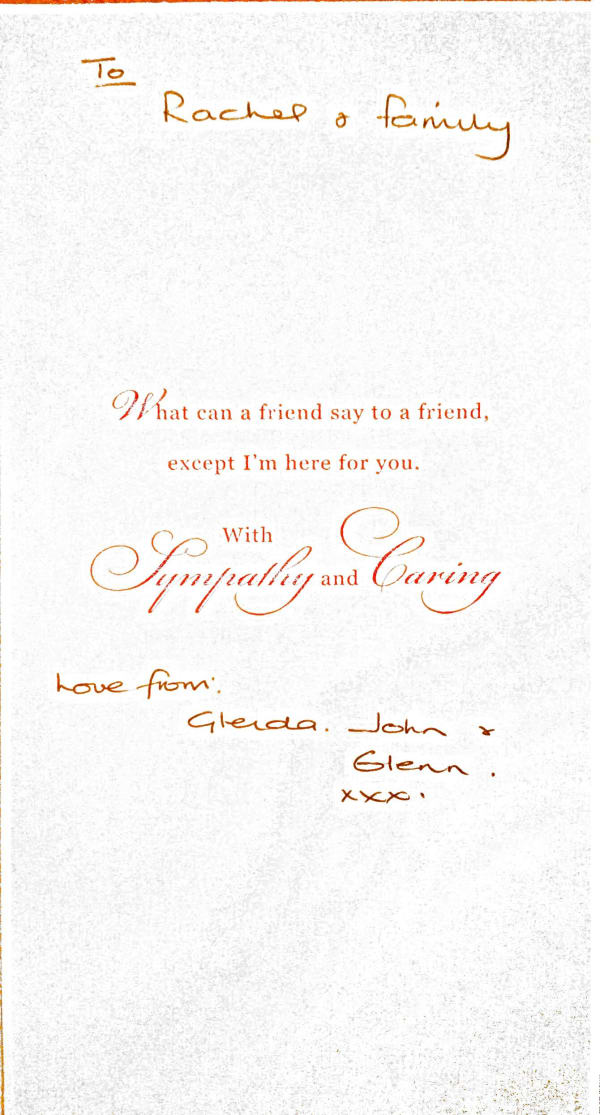 To
Rachel & family
What can a friend say to a friend,
except I'm here for you.
With
Sympathy and Caring
Love from:
Glenda. John &
Glenn.
xxx.